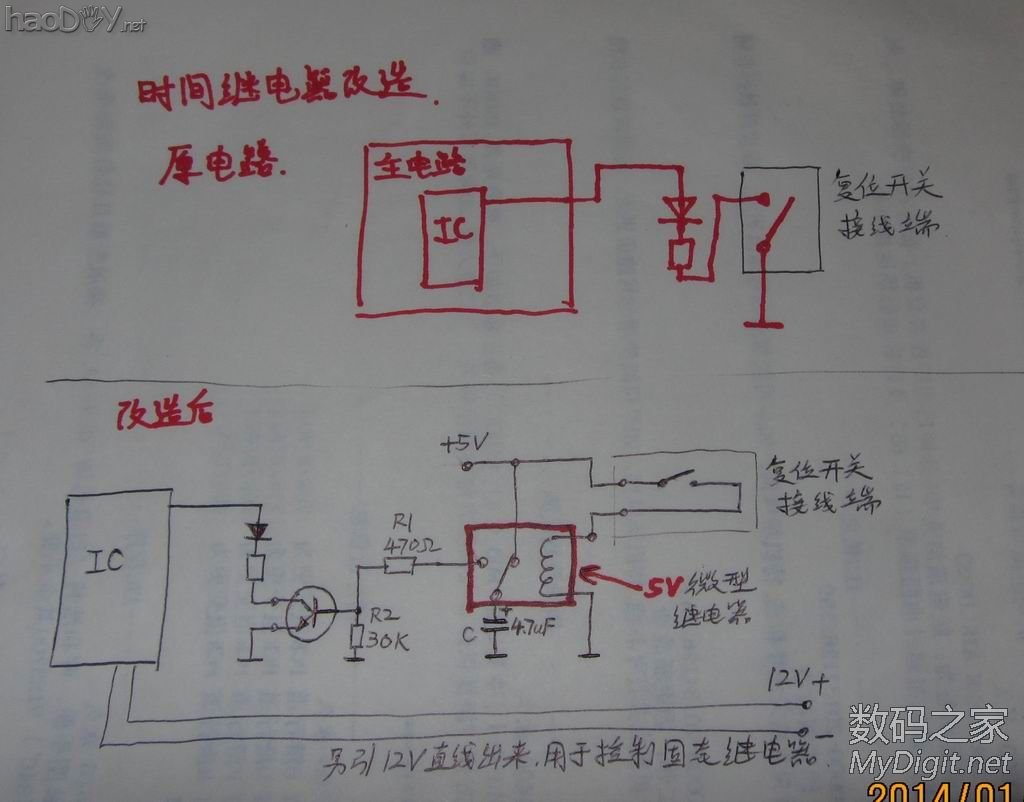 haoDIY.net
时间继电器改造.
原电路.
主电路
IC
复位开关
接线端
改造后
+5V
复位开关
接线端
R1
470Ω
IC
R2
30K
+
C
4.7uF
5V微型
继电器
12V+
-
另引12V直线出来,用于控制固态继电器.
数码之家
MyDigit.net
2014/01